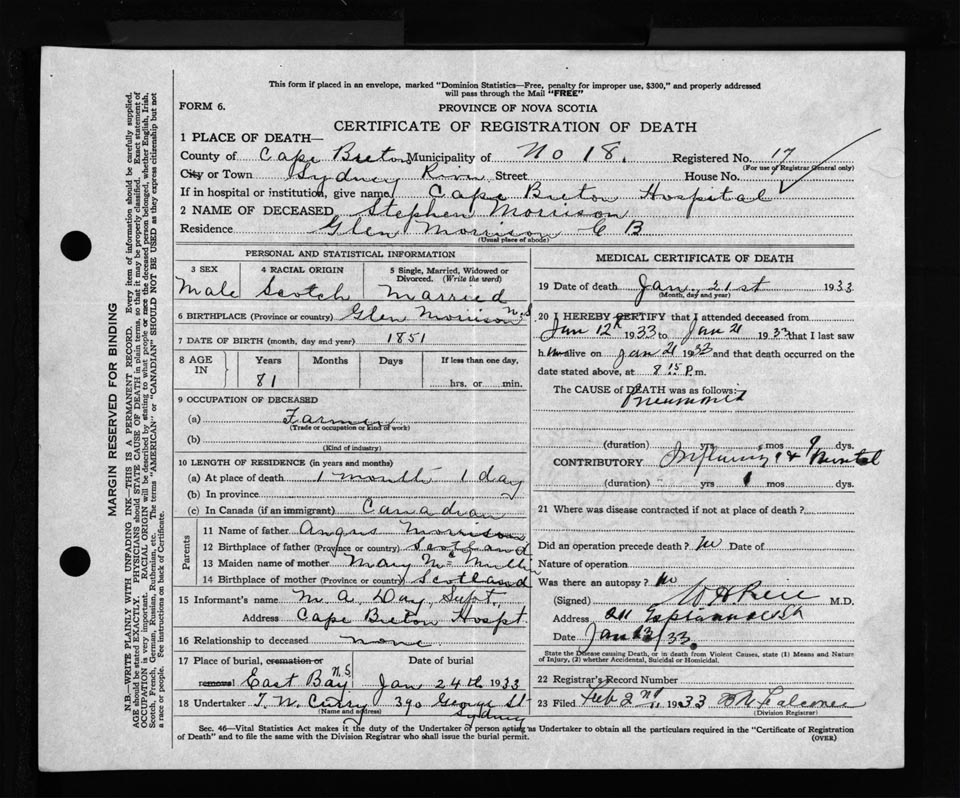 This form if placed in an envelope, marked "Dominion Statistics—Free, penalty for improper use, $300," and properly addressed
will pass through the Mail "FREE"
FORM 6.
PROVINCE OF NOVA SCOTIA
CERTIFICATE OF REGISTRATION OF DEATH
1 PLACE OF DEATH—
County of Cape Breton Municipality of No 18. Registered No. 17
(For use of Registrar General only)
City or Town Sydney River Street House No.
If in hospital or institution, give name Cape Breton Hospital
2 NAME OF DECEASED Stephen Morrison
Residence Glen Morrison C B
(Usual place of abode)
PERSONAL AND STATISTICAL INFORMATION
3 SEX 4 RACIAL ORIGIN 5 Single, Married, Widowed or Divorced. (Write the word)
Male Scotch Married
6 BIRTHPLACE (Province or country) Glen Morrison N.S
7 DATE OF BIRTH (month, day and year) 1851
8 AGE IN Years Months Days If less than one day,
81 hrs. or min.
9 OCCUPATION OF DECEASED
(a) Farmer
(Trade or occupation or kind of work)
(b)
(Kind of industry)
10 LENGTH OF RESIDENCE (in years and months)
(a) At place of death 1 month 1 day
(b) In province
(c) In Canada (if an immigrant) Canadian
Parents
11 Name of father Angus Morrison
12 Birthplace of father (Province or country) Scotland
13 Maiden name of mother Mary McMullin
14 Birthplace of mother (Province or country) Scotland
15 Informant's name M. A. Day, Supt.
Address Cape Breton Hospt.
16 Relationship to deceased none
17 Place of burial, cremation or removal Date of burial
East Bay N.S. Jan 24th 1933
18 Undertaker T. W. Curry 390 George St
(Name and address) Sydney
MEDICAL CERTIFICATE OF DEATH
19 Date of death Jan. 21st 1933
(Month, day and year)
20 I HEREBY CERTIFY that I attended deceased from
Jan 12th 1933 to Jan 21 1933 that I last saw
h im alive on Jan 21 1933 and that death occurred on the
date stated above, at 8 15 P.m.
The CAUSE of DEATH was as follows:
Pneumonia
(duration) yrs mos 9 dys.
CONTRIBUTORY Influenza &
(duration) yrs 1 mos dys.
21 Where was disease contracted if not at place of death?
Did an operation precede death? no Date of
Nature of operation
Was there an autopsy? no
(Signed) M.D.
Address
Date Jan 33.
State the Disease causing Death, or in death from Violent Causes, state (1) Means and Nature
of Injury, (2) whether Accidental, Suicidal or Homicidal.
22 Registrar's Record Number
23 Filed Feb 2nd 1933
(Division Registrar)
Sec. 46—Vital Statistics Act makes it the duty of the Undertaker or person acting as Undertaker to obtain all the particulars required in the "Certificate of Registration
of Death" and to file the same with the Division Registrar who shall issue the burial permit.
(OVER)
MARGIN RESERVED FOR BINDING
N.B.—WRITE PLAINLY WITH UNFADING INK—THIS IS A PERMANENT RECORD. Every item of information should be carefully supplied.
AGE should be stated EXACTLY. PHYSICIANS should STATE CAUSE OF DEATH in plain terms, so that it may be properly classified. Exact statement of
OCCUPATION is very important. RACIAL ORIGIN will be described by stating to what people or race the deceased person belonged, whether English, Irish,
Scotch, French, German, Russian, Ruthenian, etc. The terms "AMERICAN" or "CANADIAN" SHOULD NOT BE USED as they express citizenship but not
a race or people. See instructions on back of Certificate.